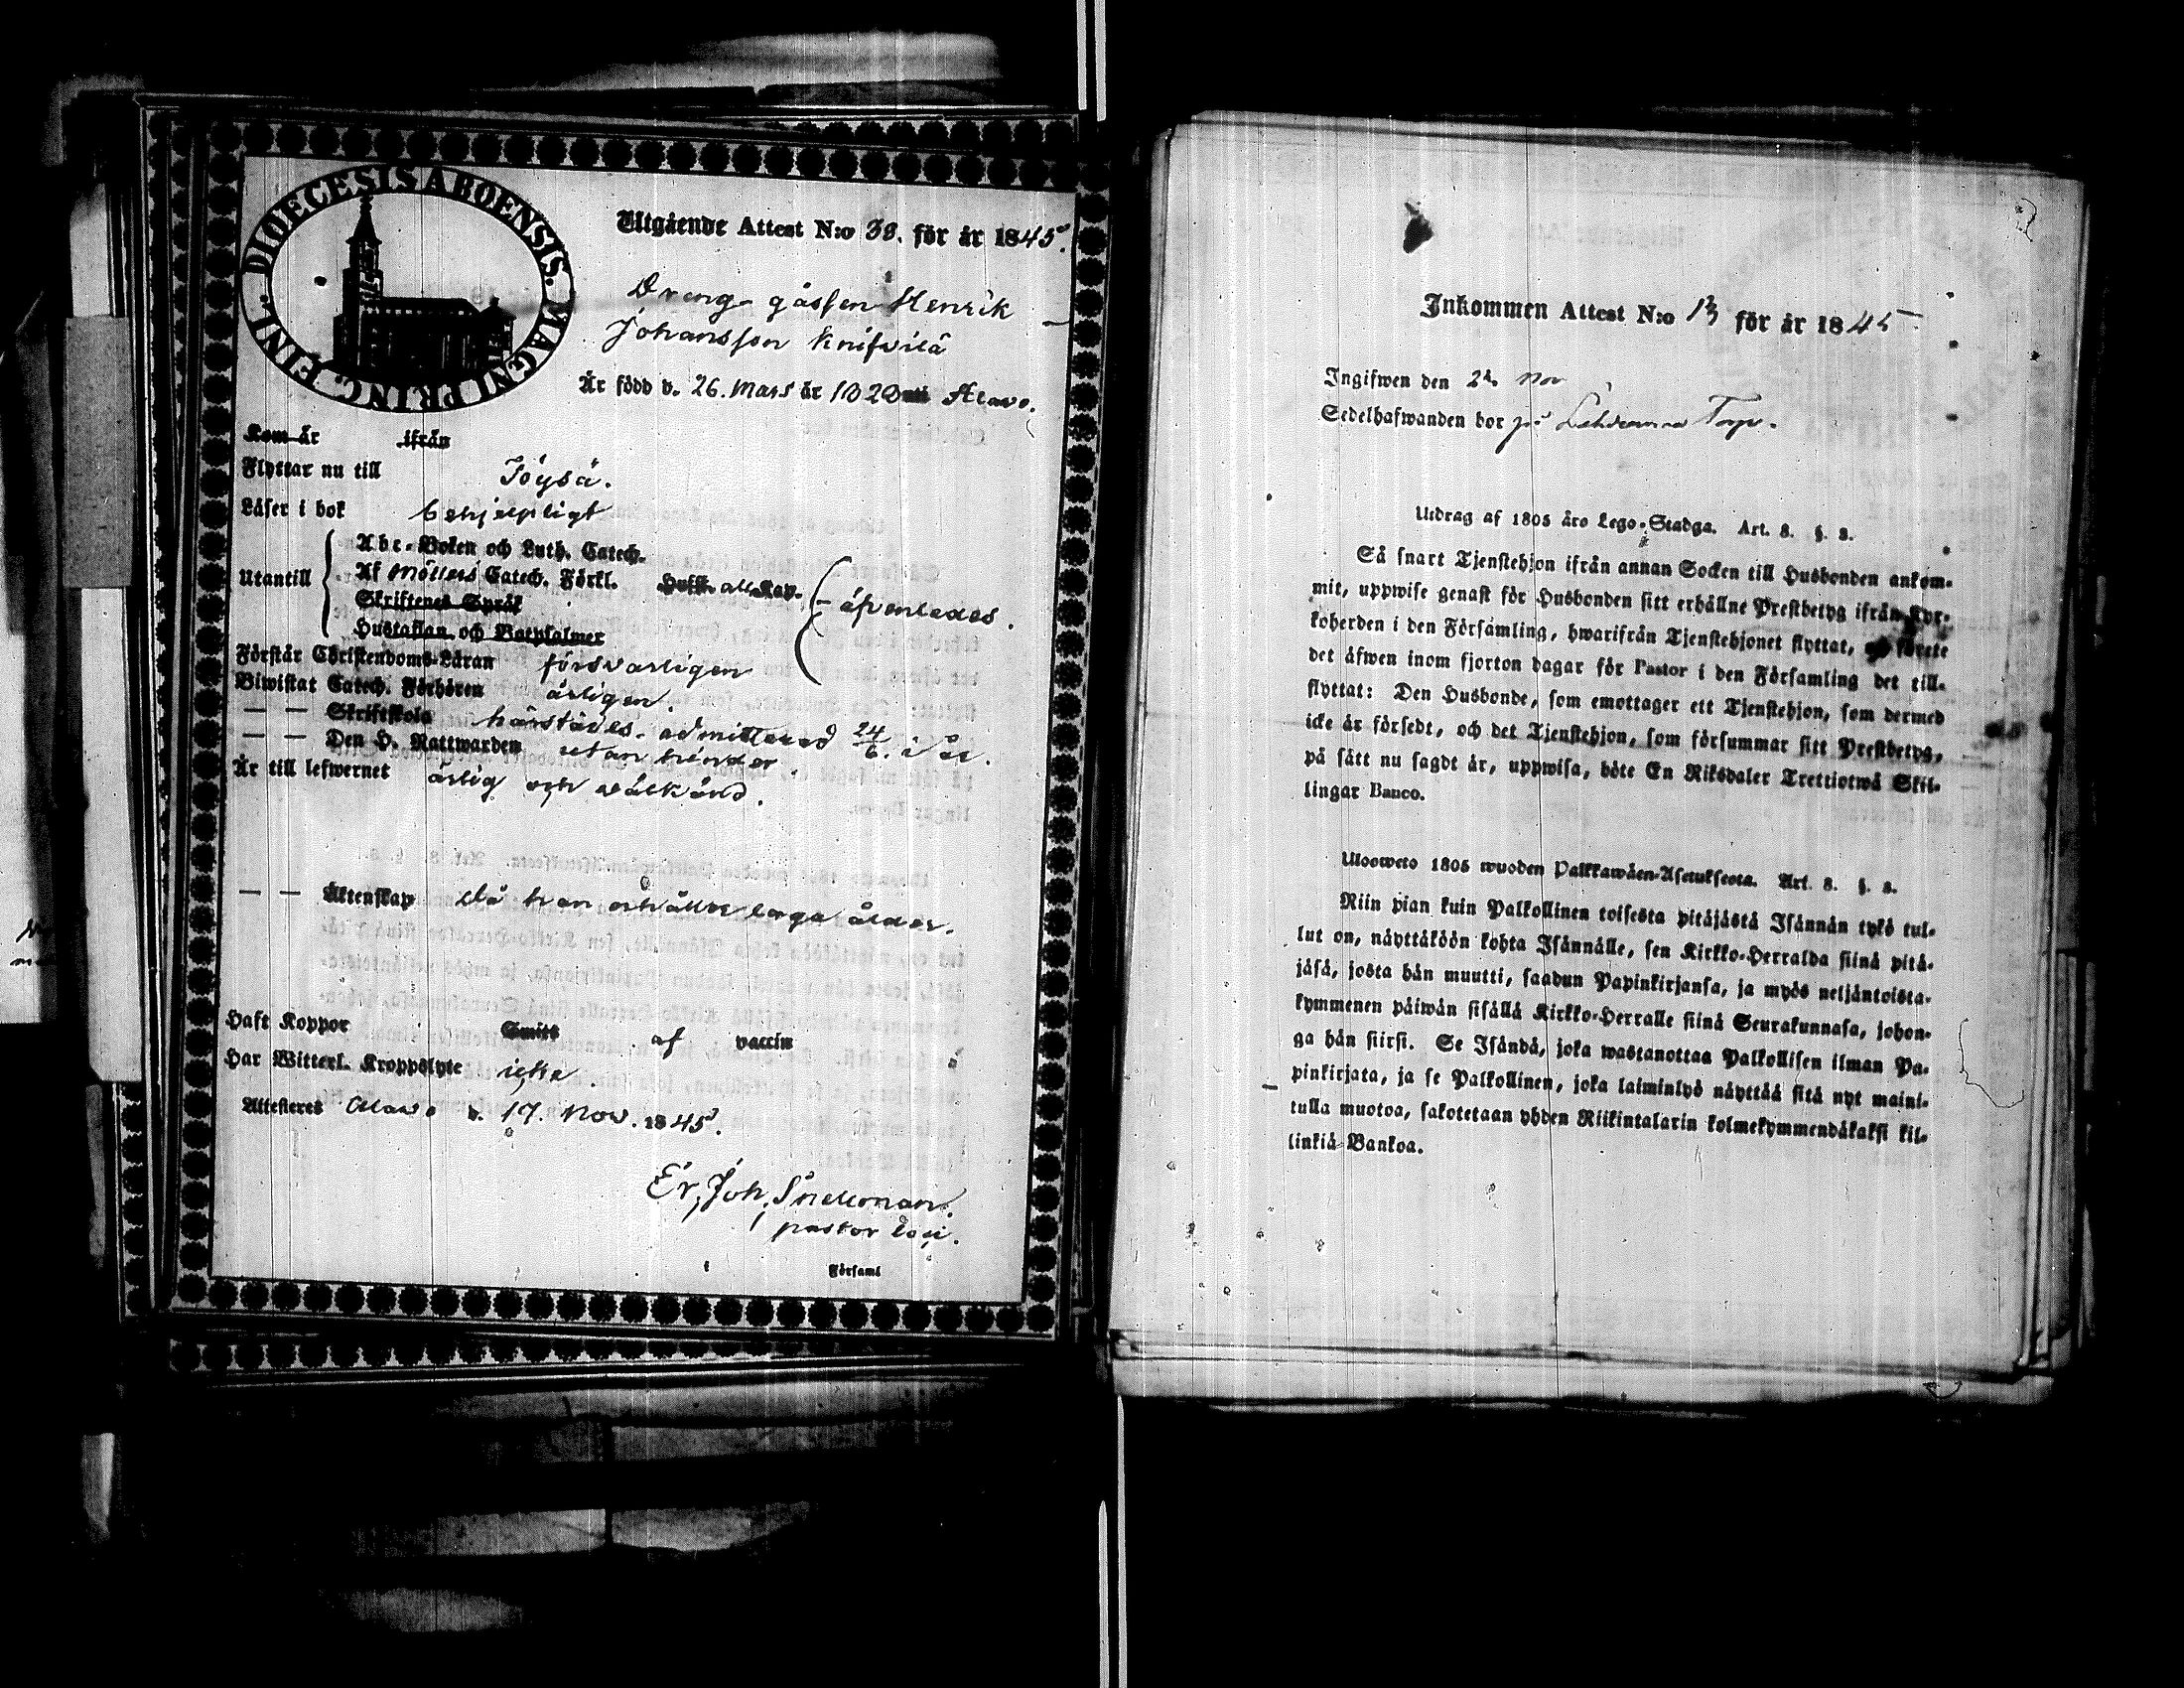 DIOECESIS ABOENSIS. MAGNI PRINC. FINL.
Utgående Attest N:o 38. för år 1845.
Drenge gåssen Henrik
Johansson Knifvilä
Är född d. 26. Mars år 1828 uti Alavo.
Kom år ifrån
Flyttar nu till Töysä.
Läser i bok behjelpligt
Utantill
Abc-Boken och Luth. Catech.
Af Möllers Catech. Förkl. Hufst. all Kap.
Skriftenes Språk
Hustaflan och Botpsalmer
åfvenledes.
Förstår Christendoms-Läran försvarligen
Biwistat Catech. Förhören årligen.
— — Skriftskola härstädes. admitterad 24/6. i år.
— — Den H. Nattwarden utan hinder.
Är till lefwernet ärlig och välkänd.
— — Äktenskap då han erhåller laga ålder.
Haft Koppor Smitt af vaccin
Har Witterl. Kroppslyte icke.
Attesteres Alavo d. 17. Nov. 1845.
Er. Joh. Snellman.
pastor loci.
Församl
Inkommen Attest N:o 13 för år 1845
Ingifwen den 24 Nov
Sedelhafwanden bor på Torp.
Utdrag af 1805 års Lego-Stadga. Art. 8. §. 8.
Så snart Tjenstehjon ifrån annan Socken till Husbonden ankom-
mit, uppwise genast för Husbonden sitt erhållne Prestbetyg ifrån Kyr-
koherden i den Församling, hwarifrån Tjenstehjonet flyttat, och förete
det äfwen inom fjorton dagar för Pastor i den Församling det till-
flyttat: Den Husbonde, som emottager ett Tjenstehjon, som dermed
icke är försedt, och det Tjenstehjon, som försummar sitt Prestbetyg,
på sätt nu sagdt är, uppwisa, böte En Riksdaler Trettiotwå Skil-
lingar Banco.
Ulosweto 1805 wuoden Palkkawäen-Asetuksesta. Art. 8. §. 8.
Niin pian kuin Palkollinen toisesta pitäjästä Isännän tykö tul-
lut on, näyttäköön kohta Isännälle, sen Kirkko-Herralda siinä pitä-
jäsä, josta hän muutti, saadun Papinkirjansa, ja myös neljäntoista-
kymmenen päiwän sisällä Kirkko-Herralle siinä Seurakunnasa, johon-
ga hän siirsi. Se Isändä, joka wastanottaa Palkollisen ilman Pa-
pinkirjata, ja se Palkollinen, joka laiminlyö näyttää sitä nyt maini-
tulla muotoa, sakotetaan yhden Riikintalarin kolmekymmendäkaksi kil-
linkiä Bankoa.